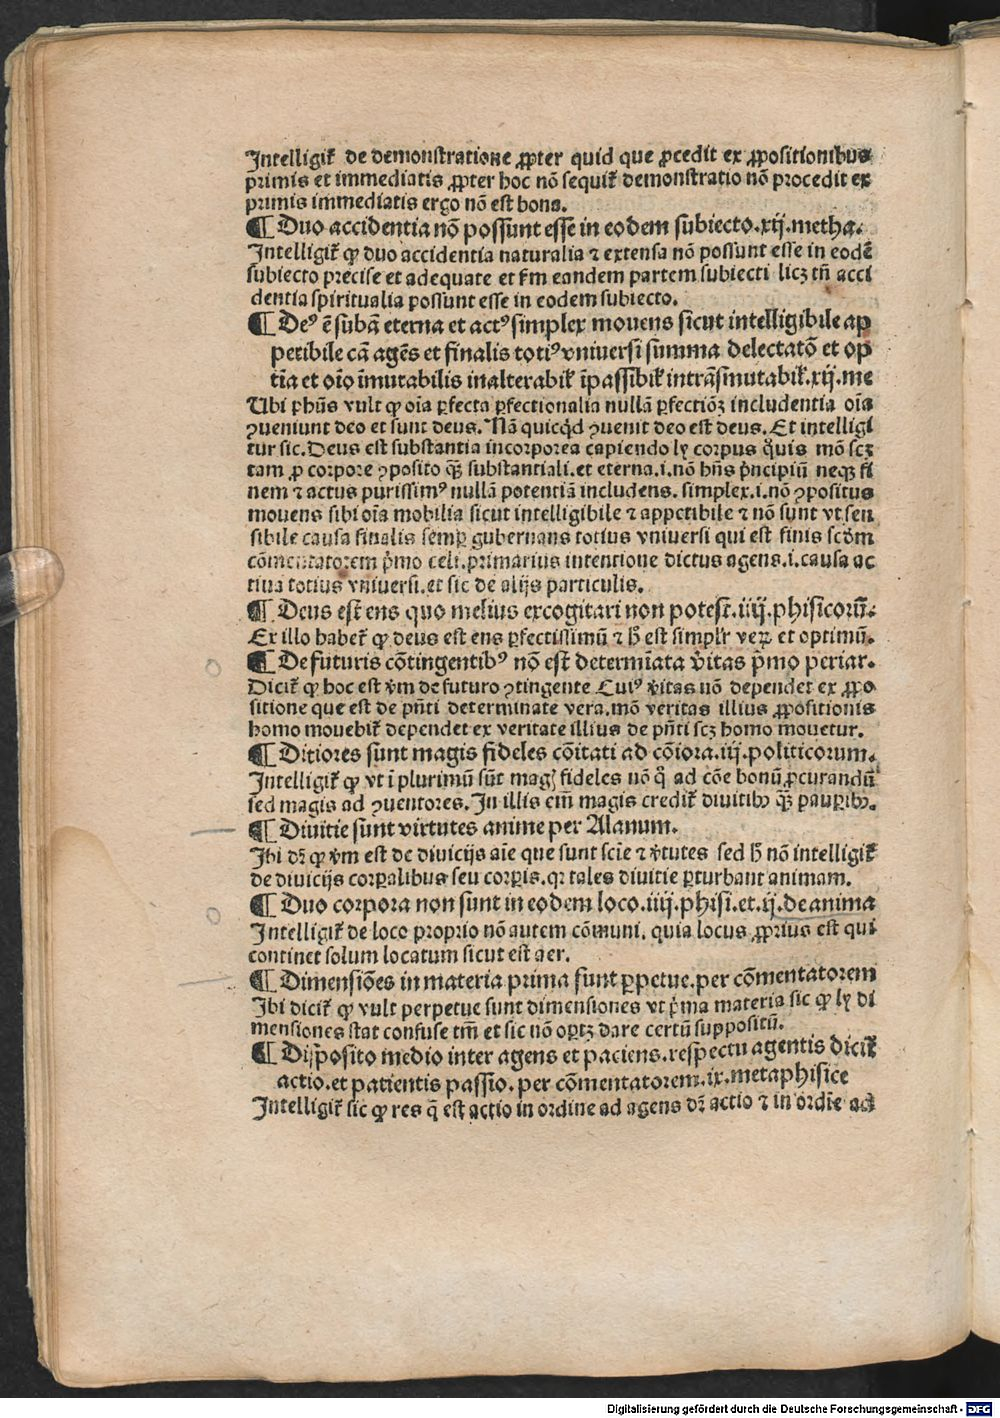 Intelligit᷑ de demonstratione ꝓpter quid que ꝓcedit ex ꝓpositionibus
primis et immediatis ꝓpter hoc nõ sequit᷑ demonstratio nõ procedit ex
primis immediatis ergo nõ est bona.
¶ Duo accidentia nõ possunt esse in eodem subiecto.xij.metha.
Intelligit᷑ ꝙ duo accidentia naturalia ⁊ extensa nõ possunt esse in eodẽ
subiecto precise et adequate et ẜm eandem partem subiecti licꝫ tñ acci
dentia spiritualia possunt esse in eodem subiecto.
¶ Deꝰ ẽ subã eterna et actꝰ simplex mouens sicut intelligibile ap
petibile cã agẽs et finalis totiꝰ vniuersi summa delectatõ et op
tĩa et oĩo ĩmutabilis inalterabil᷑ ĩpassibil᷑ intrãsmutabil᷑.xij.me
Ubi ph̃us vult ꝙ oĩa ꝑfecta ꝑfectionalia nullã ꝑfectiõꝫ includentia oĩa
ꝯueniunt deo et sunt deus. Nã quicq̃d ꝯuenit deo est deus. Et intelligi
tur sic. Deus est substantia incorporea capiendo ly corpus q̃uis mõ scꝫ
tam ꝓ corpore ꝯposito q̃ꝫ substantiali.et eterna.i.nõ hñs p̃ncipiũ neqꝫ fi
nem ⁊ actus purissimꝰ nullã potentiã includens. simplex.i.nõ ꝯpositus
mouens sibi oĩa mobilia sicut intelligibile ⁊ appetibile ⁊ nõ sunt vt sen
sibile causa finalis semꝑ gubernans totius vniuersi qui est finis scd̃m
cõmentatorem p̃mo celi.primarius intentione dictus agens.i.causa ac
tiua totius vniuersi.et sic de alijs particulis.
¶ Deus est ens quo melius excogitari non potest.iiij.phisicorũ.
Ex illo habet᷑ ꝙ deus est ens ꝑfectissimũ ⁊ h̃ est simpl᷑r veꝝ et optimũ.
¶ De futuris cõtingentibꝰ nõ est determĩata ṽitas p̃mo periar.
Dicit᷑ ꝙ hoc est ṽm de futuro ꝯtingente Cuiꝰ ṽitas nõ dependet ex ꝓpo
sitione que est de pñti determinate vera.mõ veritas illius ꝓpositionis
homo mouebit᷑ dependet ex veritate illius de pñti scꝫ homo mouetur.
¶ Ditiores sunt magis fideles cõitati ad cõiora.iij.politicorum.
Intelligit᷑ ꝙ vt ĩ plurimũ sũt magꝭ fideles nõ q̃ ad cõe bonũ ꝓcurandũ
sed magis ad ꝯuentores. In illis eĩ magis credit᷑ diuitibꝫ q̃ꝫ pauꝑibꝫ.
¶ Diuitie sunt virtutes anime per Alanum.
Ibi dr̃ ꝙ ṽm est de diuicijs aĩe que sunt sciẽ ⁊ ṽtutes sed h̃ nõ intelligit᷑
de diuicijs corꝑalibus seu corꝑis.qꝛ tales diuitie ꝑturbant animam.
¶ Duo corpora non sunt in eodem loco.iiij.phisi.et.ij.de anima
Intelligit᷑ de loco proprio nõ autem cõmuni. quia locus ꝓprius est qui
continet solum locatum sicut est aer.
¶ Dimensiões in materia prima sunt ꝑpetue.per cõmentatorem
Ibi dicit᷑ ꝙ vult perpetue sunt dimensiones vt p̃ma materia sic ꝙ ly di
mensiones stat confuse tm̃ et sic nõ oꝑtꝫ dare certũ suppositũ.
¶ Disposito medio inter agens et paciens.respectu agentis dicit᷑
actio.et patientis passio.per cõmentatorem.ix.metaphisice
Intelligit᷑ sic ꝙ res q̃ est actio in ordine ad agens dr̃ actio ⁊ in ordĩe ad
Digitalisierung gefördert durch die Deutsche Forschungsgemeinschaft - DFG